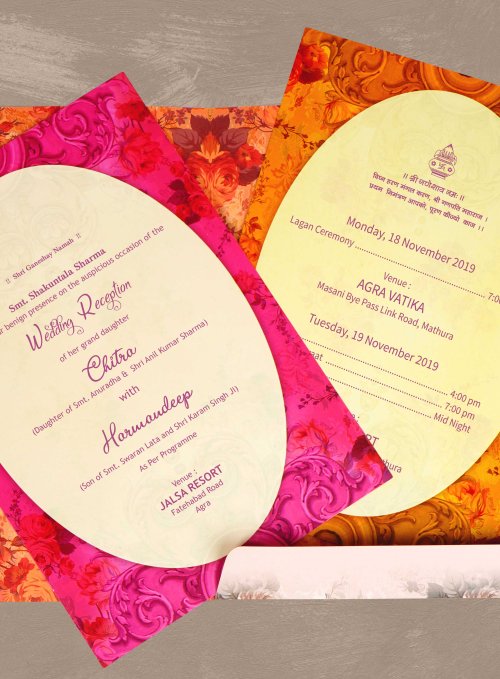 !! Shri Ganeshay Namah !!
Smt. Shakuntala Sharma
benign presence on the auspicious occasion of the
Wedding Reception
of her grand daughter
Chitra
(Daughter of Smt. Anuradha & Shri Anil Kumar Sharma)
with
Harmandeep
(Son of Smt. Swaran Lata and Shri Karam Singh Ji)
As Per Programme
Venue :
JALSA RESORT
Fatehabad Road
Agra
॥ श्री गणेशाय नमः ॥
विघ्न हरण मंगल करण, श्री गणपति महाराज।
प्रथम निमंत्रण आपको, पूरण कीज्यो काज ।।
Monday, 18 November 2019
Lagan Ceremony
Venue :
AGRA VATIKA
Masani Bye Pass Link Road, Mathura
Tuesday, 19 November 2019
4:00 pm
7:00 pm
Mid Night